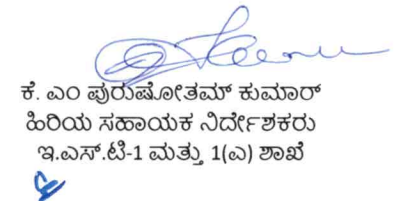 ಕೆ. ಎಂ ಪುರುಷೋತಮ್ ಕುಮಾರ್
ಹಿರಿಯ ಸಹಾಯಕ ನಿರ್ದೇಶಕರು
ಇ.ಎಸ್.ಟಿ-1 ಮತ್ತು 1(ಎ) ಶಾಖೆ